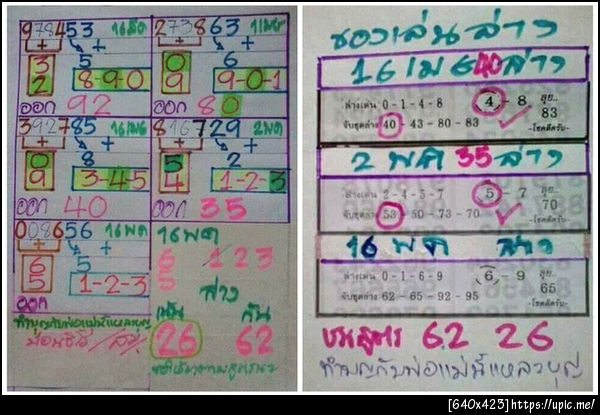 978453 16มีค
+ +
3 5
2 8-9-0
ออก 92
273863 1เมย
+ +
0 6
9 9-0-1
ออก 80
392785 16เมย
+ +
0 8
9 3-4-5
ออก 40
816729 2พค
+ +
5 2
4 1-2-3
ออก 35
008656 16พค
+ +
6 5
5 1-2-3
ออก
16พค
6 1 2 3
5 ล่าง
เน้น กัน
26 62
ทำบุญกับพ่อแม่นี้แหละบุญ
ของเล่นล่าง
16 เมย 40 ล่าง
ล่างเด่น 0 - 1 - 4 - 8 4 - 8 ลุย..
83
จับชุดล่าง 40 - 43 - 80 - 83 -โชคดีครับ-
2 พค 35 ล่าง
ล่างเด่น 2 - 4 - 5 - 7 5 - 7 ลุย..
70
จับชุดล่าง 53 - 50 - 73 - 70 -โชคดีครับ-
16 พค ล่าง
ล่างเด่น 0 - 1 - 6 - 9 6 - 9 ลุย..
65
จับชุดล่าง 62 - 65 - 92 - 95 -โชคดีครับ-
ชนสูตร 62 26
ทำบุญกับพ่อแม่นี้แหละบุญ
[640x423]https://upic.me/